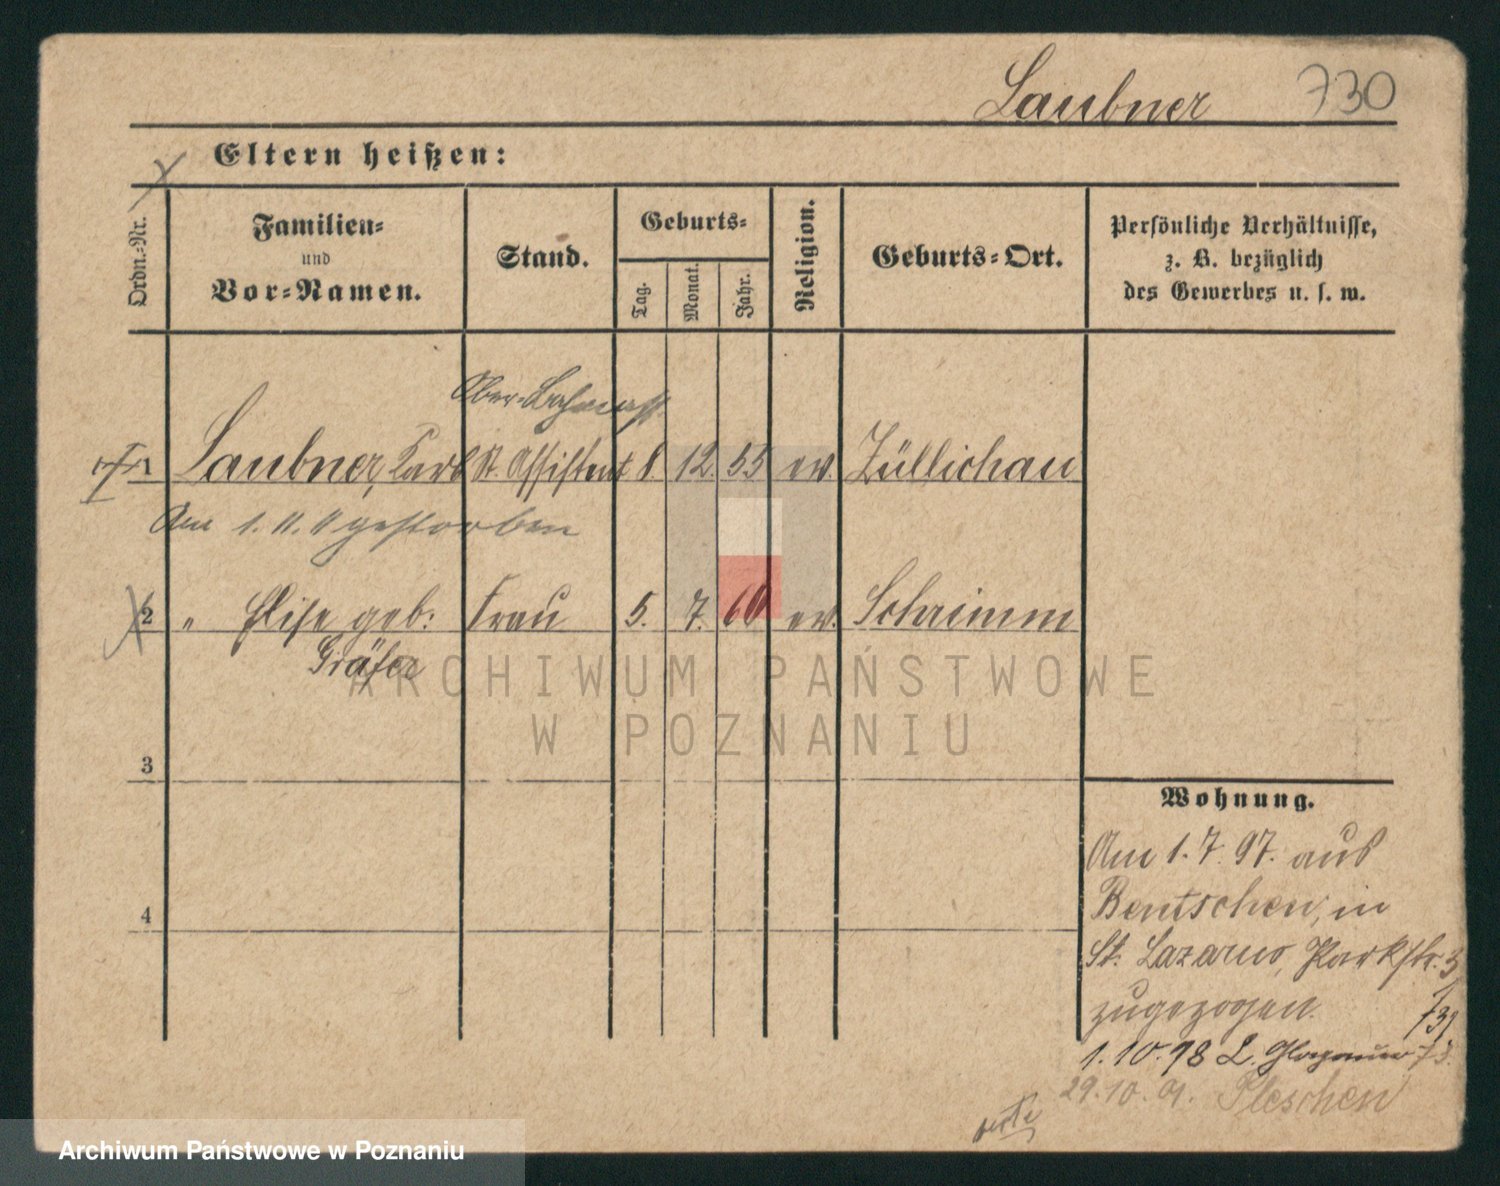 Laubner 730
Eltern heißen:
Ordn.-Nr.
Familien-
und
Vor-Namen.
Stand.
Geburts-
Tag.
Monat.
Jahr.
Religion.
Geburts-Ort.
Persönliche Verhältnisse,
z. B. bezüglich
des Gewerbes u. s. w.
Ober-Bahnasst
1 Laubner, Karl St. Assistent 8. 12. 55 ev. Züllichau
Am 1. 11. 11 gestorben
2 " Elise geb: Frau 5. 7. 60 ev. Schrimm
Gräser
ARCHIWUM PAŃSTWOWE
W POZNANIU
3
4
Wohnung.
Am 1. 7. 97. aus
Bentschen, in
St. Lazarus, Parkstr. 3
zugezogen.
1. 10. 98 L. Glogauer 73.
29. 10. 01. Pleschen
Archiwum Państwowe w Poznaniu